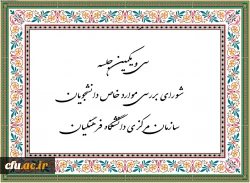 سی و یکمین جلسه
شورای بررسی موارد خاص دانشجویان
سازمان مرکزی دانشگاه فرهنگیان
cfu.ac.ir